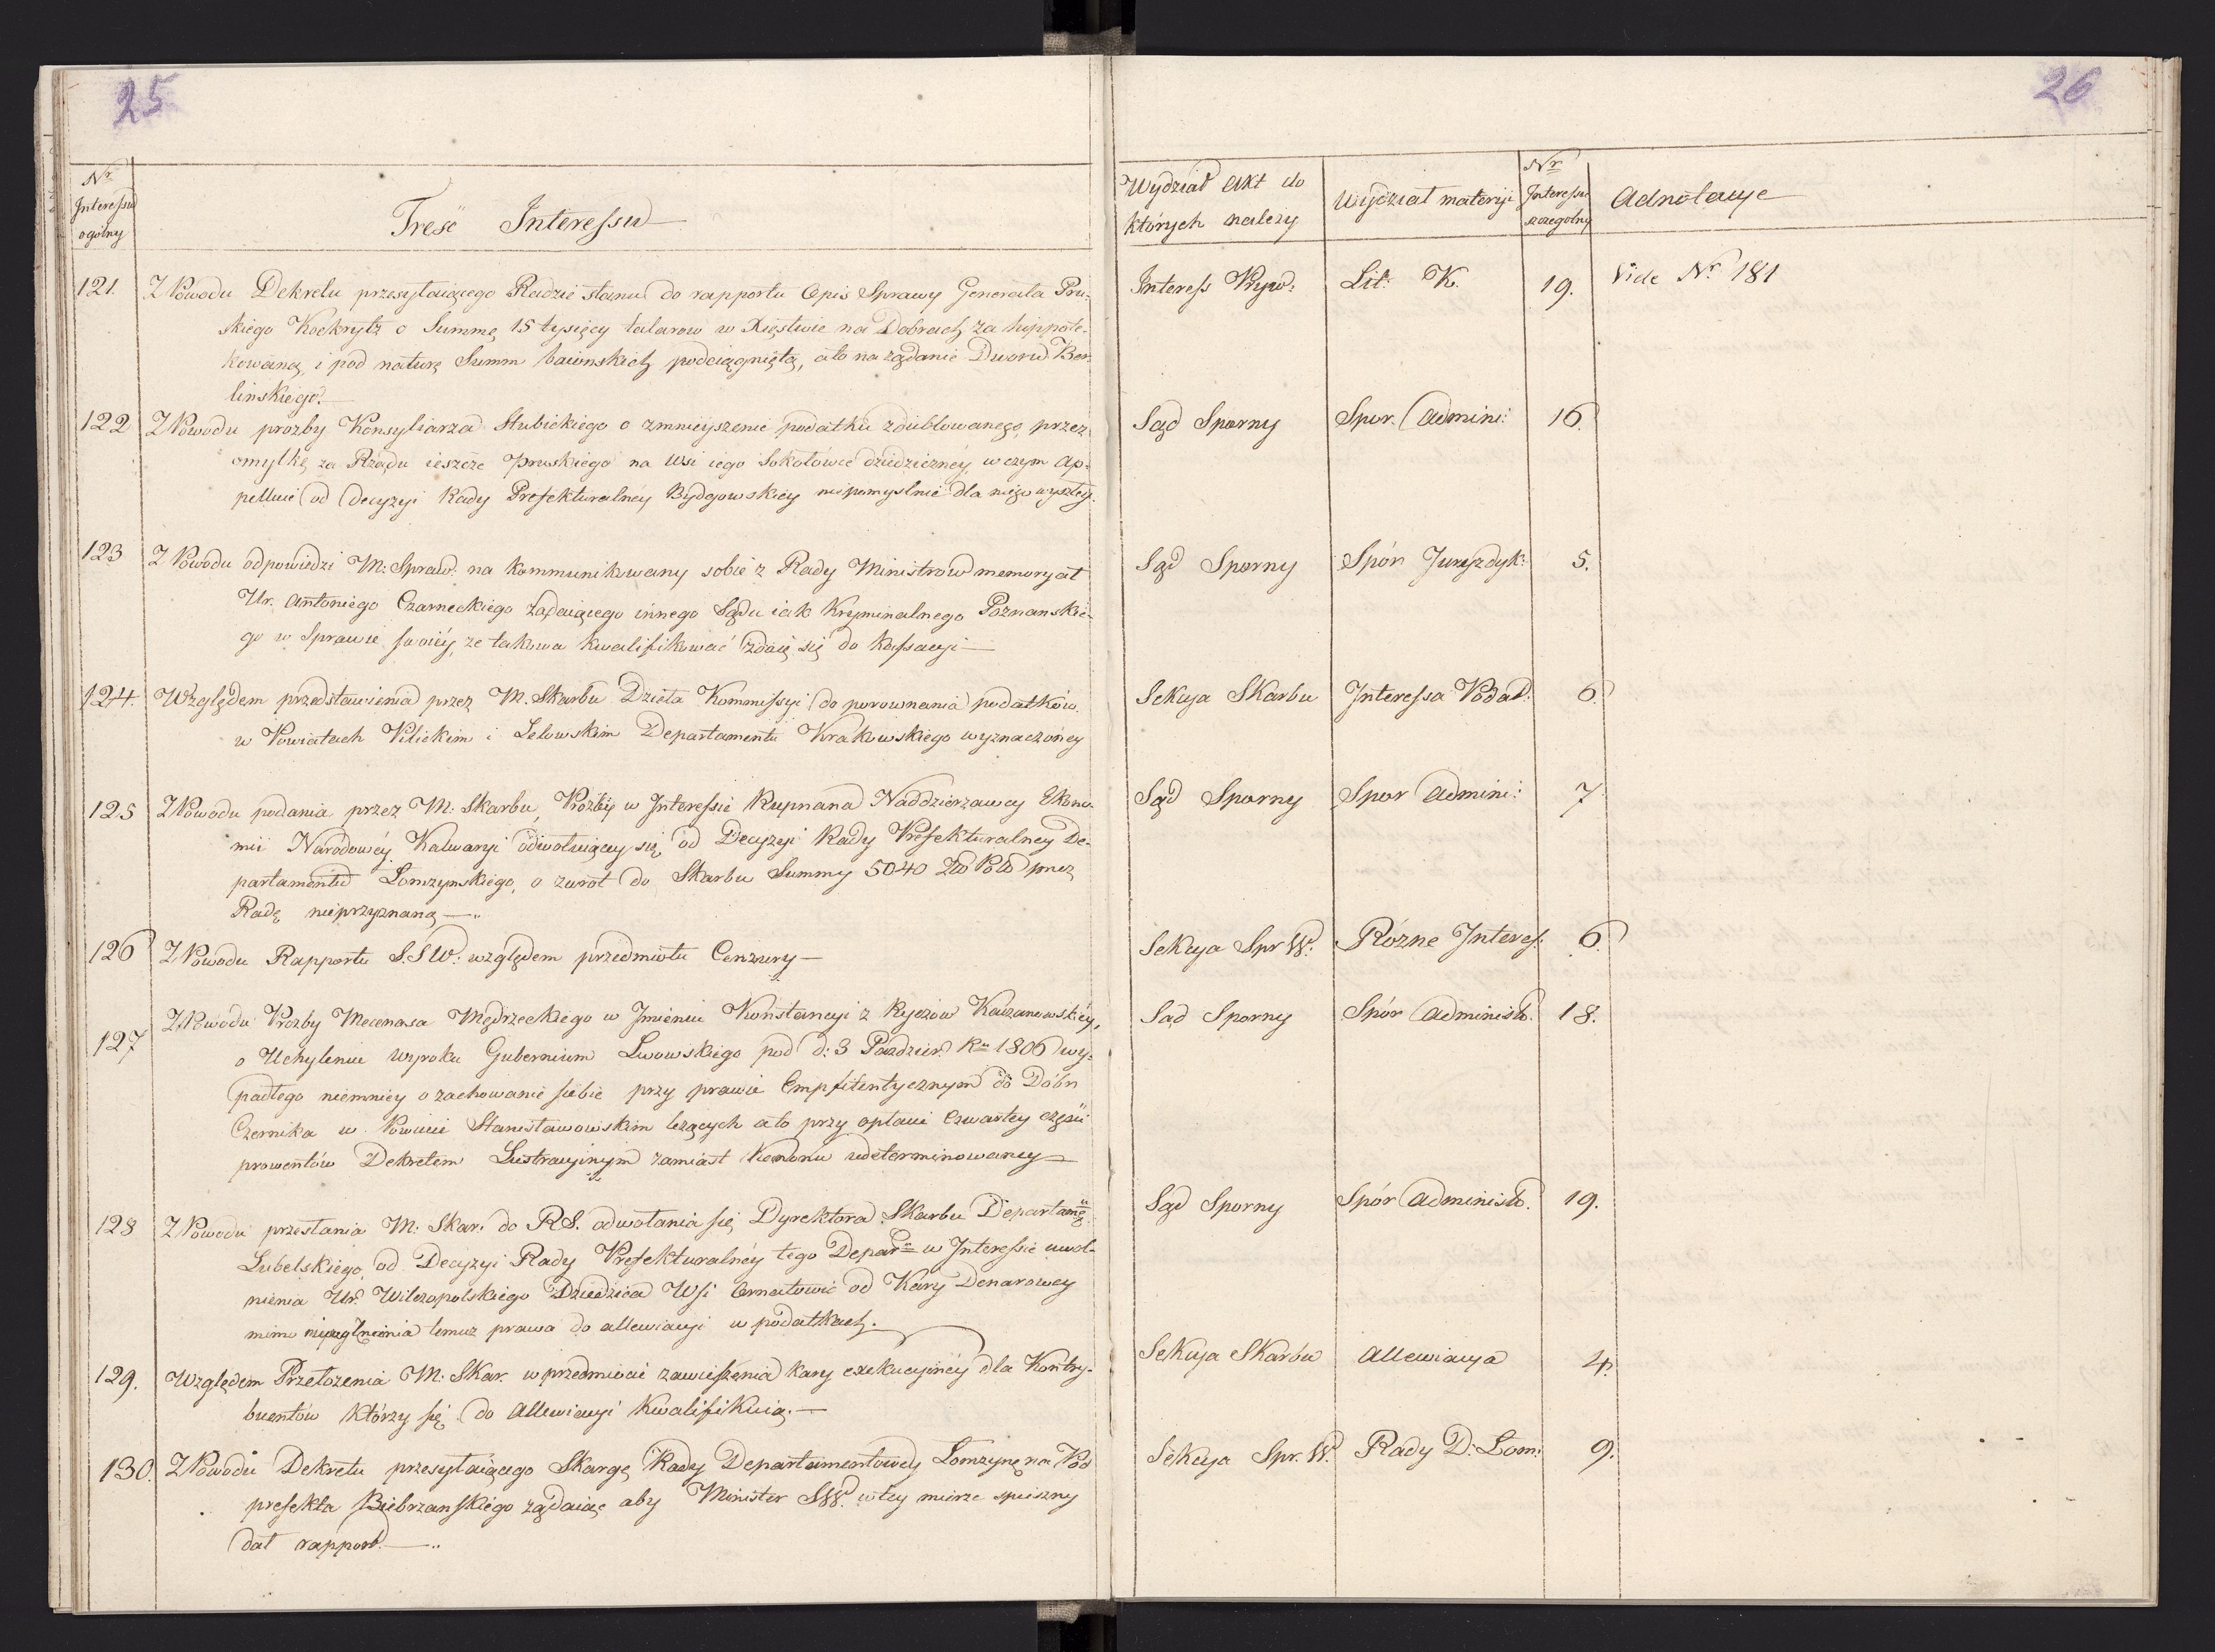 25
26
Nr
Interessu
ogólny
Treść Interessu
Wydział Akt do
których należy
Wydział materyi
Nr
Interessu
szczegolny
Adnotacye
121. Z Powodu Dekretu przesyłaiącego Radzie stanu do rapportu Opis Sprawy Generała Pru-
skiego Kockrytz o Summę 15 tysięcy talarow w Xięstwie na Dobrach za hippote-
kowaną i pod naturę Summ baionskich podciągniętą, a to na żądanie Dworu Ber-
linskiego.
Interess Pryw: Lit: K. 19. Vide Nr 181
122 Z Powodu prozby Konsyliarza Słubickiego o zmnieyszenie podatku zdublowanego, przez
omyłkę za Rządu ieszcze Pruskiego na Wsi iego Sokołowie dziedziczney, w czym Ap-
pelluie od Decyzyi Rady Prefekturalney Bydgowskiey niepomyslnie dla niego wyszłey.
Sąd Sporny Spor. Admini: 16.
123 Z Powodu odpowiedzi M: Spraw. na kommunikowany sobie z Rady Ministrow memoryał
Ur. Antoniego Czarneckiego żądaiącego innego Sądu iak Kryminalnego Poznanskie-
go w Sprawie swoiéy, że takowa kwalifikować zdaię się do Kassacyi—
Sąd Sporny Spór Juryzdyk: 5.
124. Względem przedstawienia przez M. Skarbu Dzieła Kommissyi do porownania podatków
w Powiatach Pilickim i Lelowskim Departamentu Krakowskiego wyznaczoney
Sekcya Skarbu Interessa Podat: 6.
125 Z Powodu podania przez M: Skarbu, Prożbę w Interessie Kupnana Naddzierzawcy Ekono-
mii Narodowéy Kalwaryi odwołuiący się od Decyzyi Rady Prefekturalney De-
partamentu Łomzynskiego, o zwrot do Skarbu Summy 5040 Zło Pols przez
Radę nieprzyznaną—
Sąd Sporny Spor Admini: 7
126 Z Powodu Rapportu S.S.W: względem przedmiotu Cenzury—
Sekcya Spr W: Rózne Interes: 6.
127 Z Powodu Prozby Mecenasa Mędrzeckiego w Jmieniu Konstancyi z Ryczów Kaczanowskiéy,
o Uchylenie wyroku Gubernium Lwowskiego pod d: 3 Pazdzier. Ru 1806 wy-
padłego niemniey o zachowanie siebie przy prawie Empfitentycznym do Dóbr
Czernika w Powiecie Stanisławowskim leżących a to przy opłacie czwartey części
prowentów Dekretem Lustracyinym zamiast Kanonu udeterminowaney—
Sąd Sporny Spór Administr. 18.
128 Z Powodu przesłania M: Skar: do R.S. odwołania się Dyrektora Skarbu Departame
Lubelskiego, od Decyzyi Rady Prefekturalnéy tego Depar. w Interessie uwol-
nienia Ur. Wilczopolskiego Dziedzica Wsi od Kary Denarowey
mimo temuz prawa do allewiacyi w podatkach.
Sąd Sporny Spór Administr. 19.
129. Względem Przełozenia M: Skar. w przedmiocie zawieszenia kary exekucyinéy dla Kontry-
buentów którzy się do Allewiacyi Kwalifikuią.—
Sekcya Skarbu Allewiacya 4.
130. Z Powodu Dekretu przesyłaiącego Skargę Rady Departamentowéy Łomzynę na Pod
prefekta Biebrzanskiego żądaiąc aby Minister SW. w tey mierze spieszny
dał rapport.—
Sekcya Spr. W. Rady D: Łom: 9.